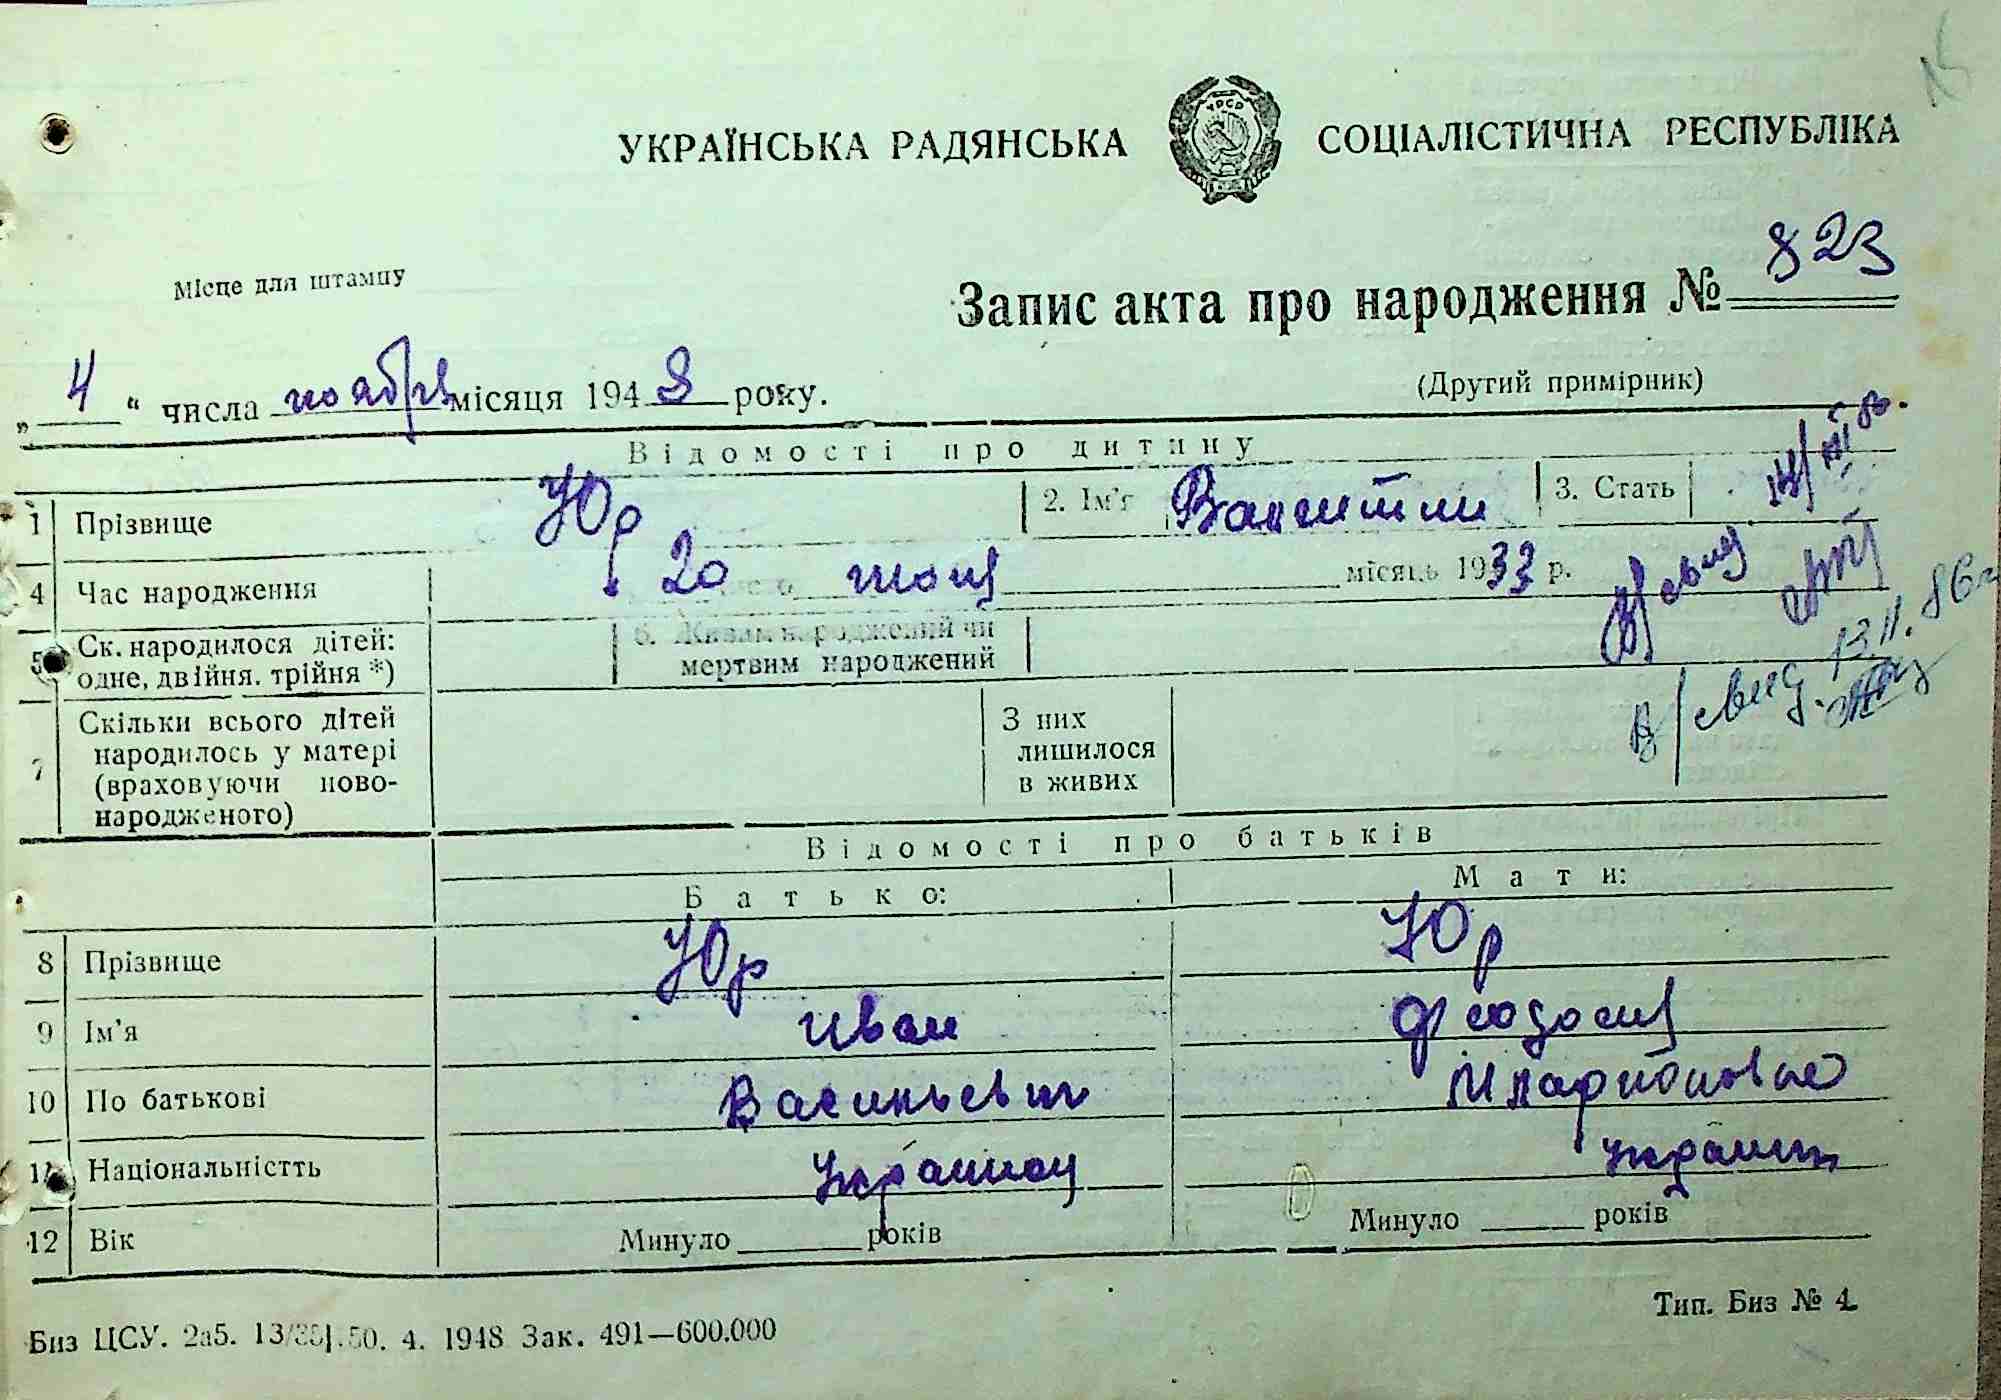 УКРАЇНСЬКА РАДЯНСЬКА СОЦІАЛІСТИЧНА РЕСПУБЛІКА
УРСР
Місце для штампу
Запис акта про народження № 823
„ 4 “ числа ноября місяця 1948 року.
(Другий примірник)
Відомості про дитину
1 Прізвище Юр 2. Ім'я 3. Стать
4 Час народження 20 місяць 1933 р.
5 Ск. народилося дітей: одне, двійня. трійня *) 6. Живим народжений чи мертвим народжений
7 Скільки всього дітей народилось у матері (враховуючи новонародженого) З них лишилося в живих
В/свид
В/свид. 13.11.86г
Відомості про батьків
Батько: Мати:
8 Прізвище Юр Юр
9 Ім'я Иван Феодосия
10 По батькові Васильевич Иларионовна
11 Національністть украинец украин
12 Вік Минуло років Минуло років
Тип. Биз № 4
Биз ЦСУ. 2а5. 13/ 50. 4. 1948 Зак. 491—600.000